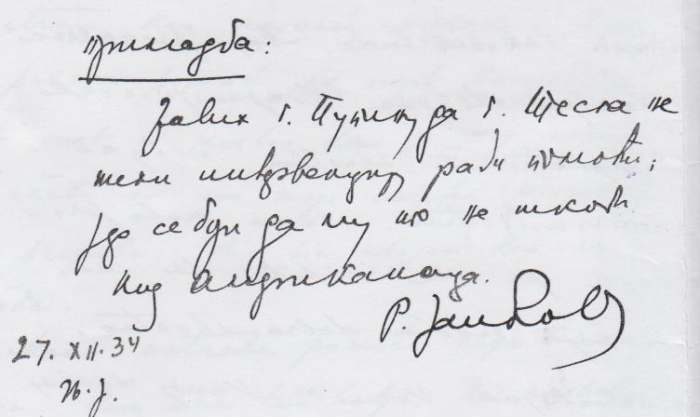 Примедба:
Јавих г. Пупину да г. Тесла не
жели интервенцију ради помоћи,
јер се боји да му то не шкоди
код Американаца.
Р. Јанковић
27. XII. 34
Њ. Ј.